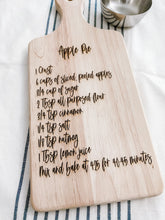 Apple Pie
1 Crust
6 cups of sliced, peeled apples
3/4 cup of sugar
2 TBSP all purposed flour
3/4 TSP cinnamon
1/4 TSP salt
1/8 TSP nutmeg
1 TBSP lemon juice
Mix and bake at 425 for 40-45 minutes